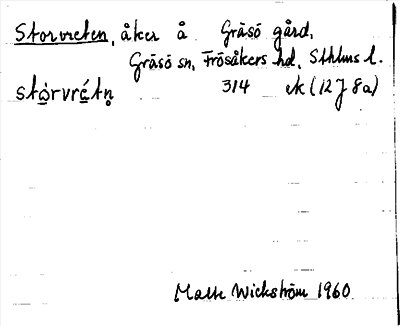 Storvreten, åker å Gräsö gård,
Gräsö sn, Frösåkers hd, Sthlms l.
stórvrétn̥ 314 ek (12J 8a)
Malte Wickström 1960